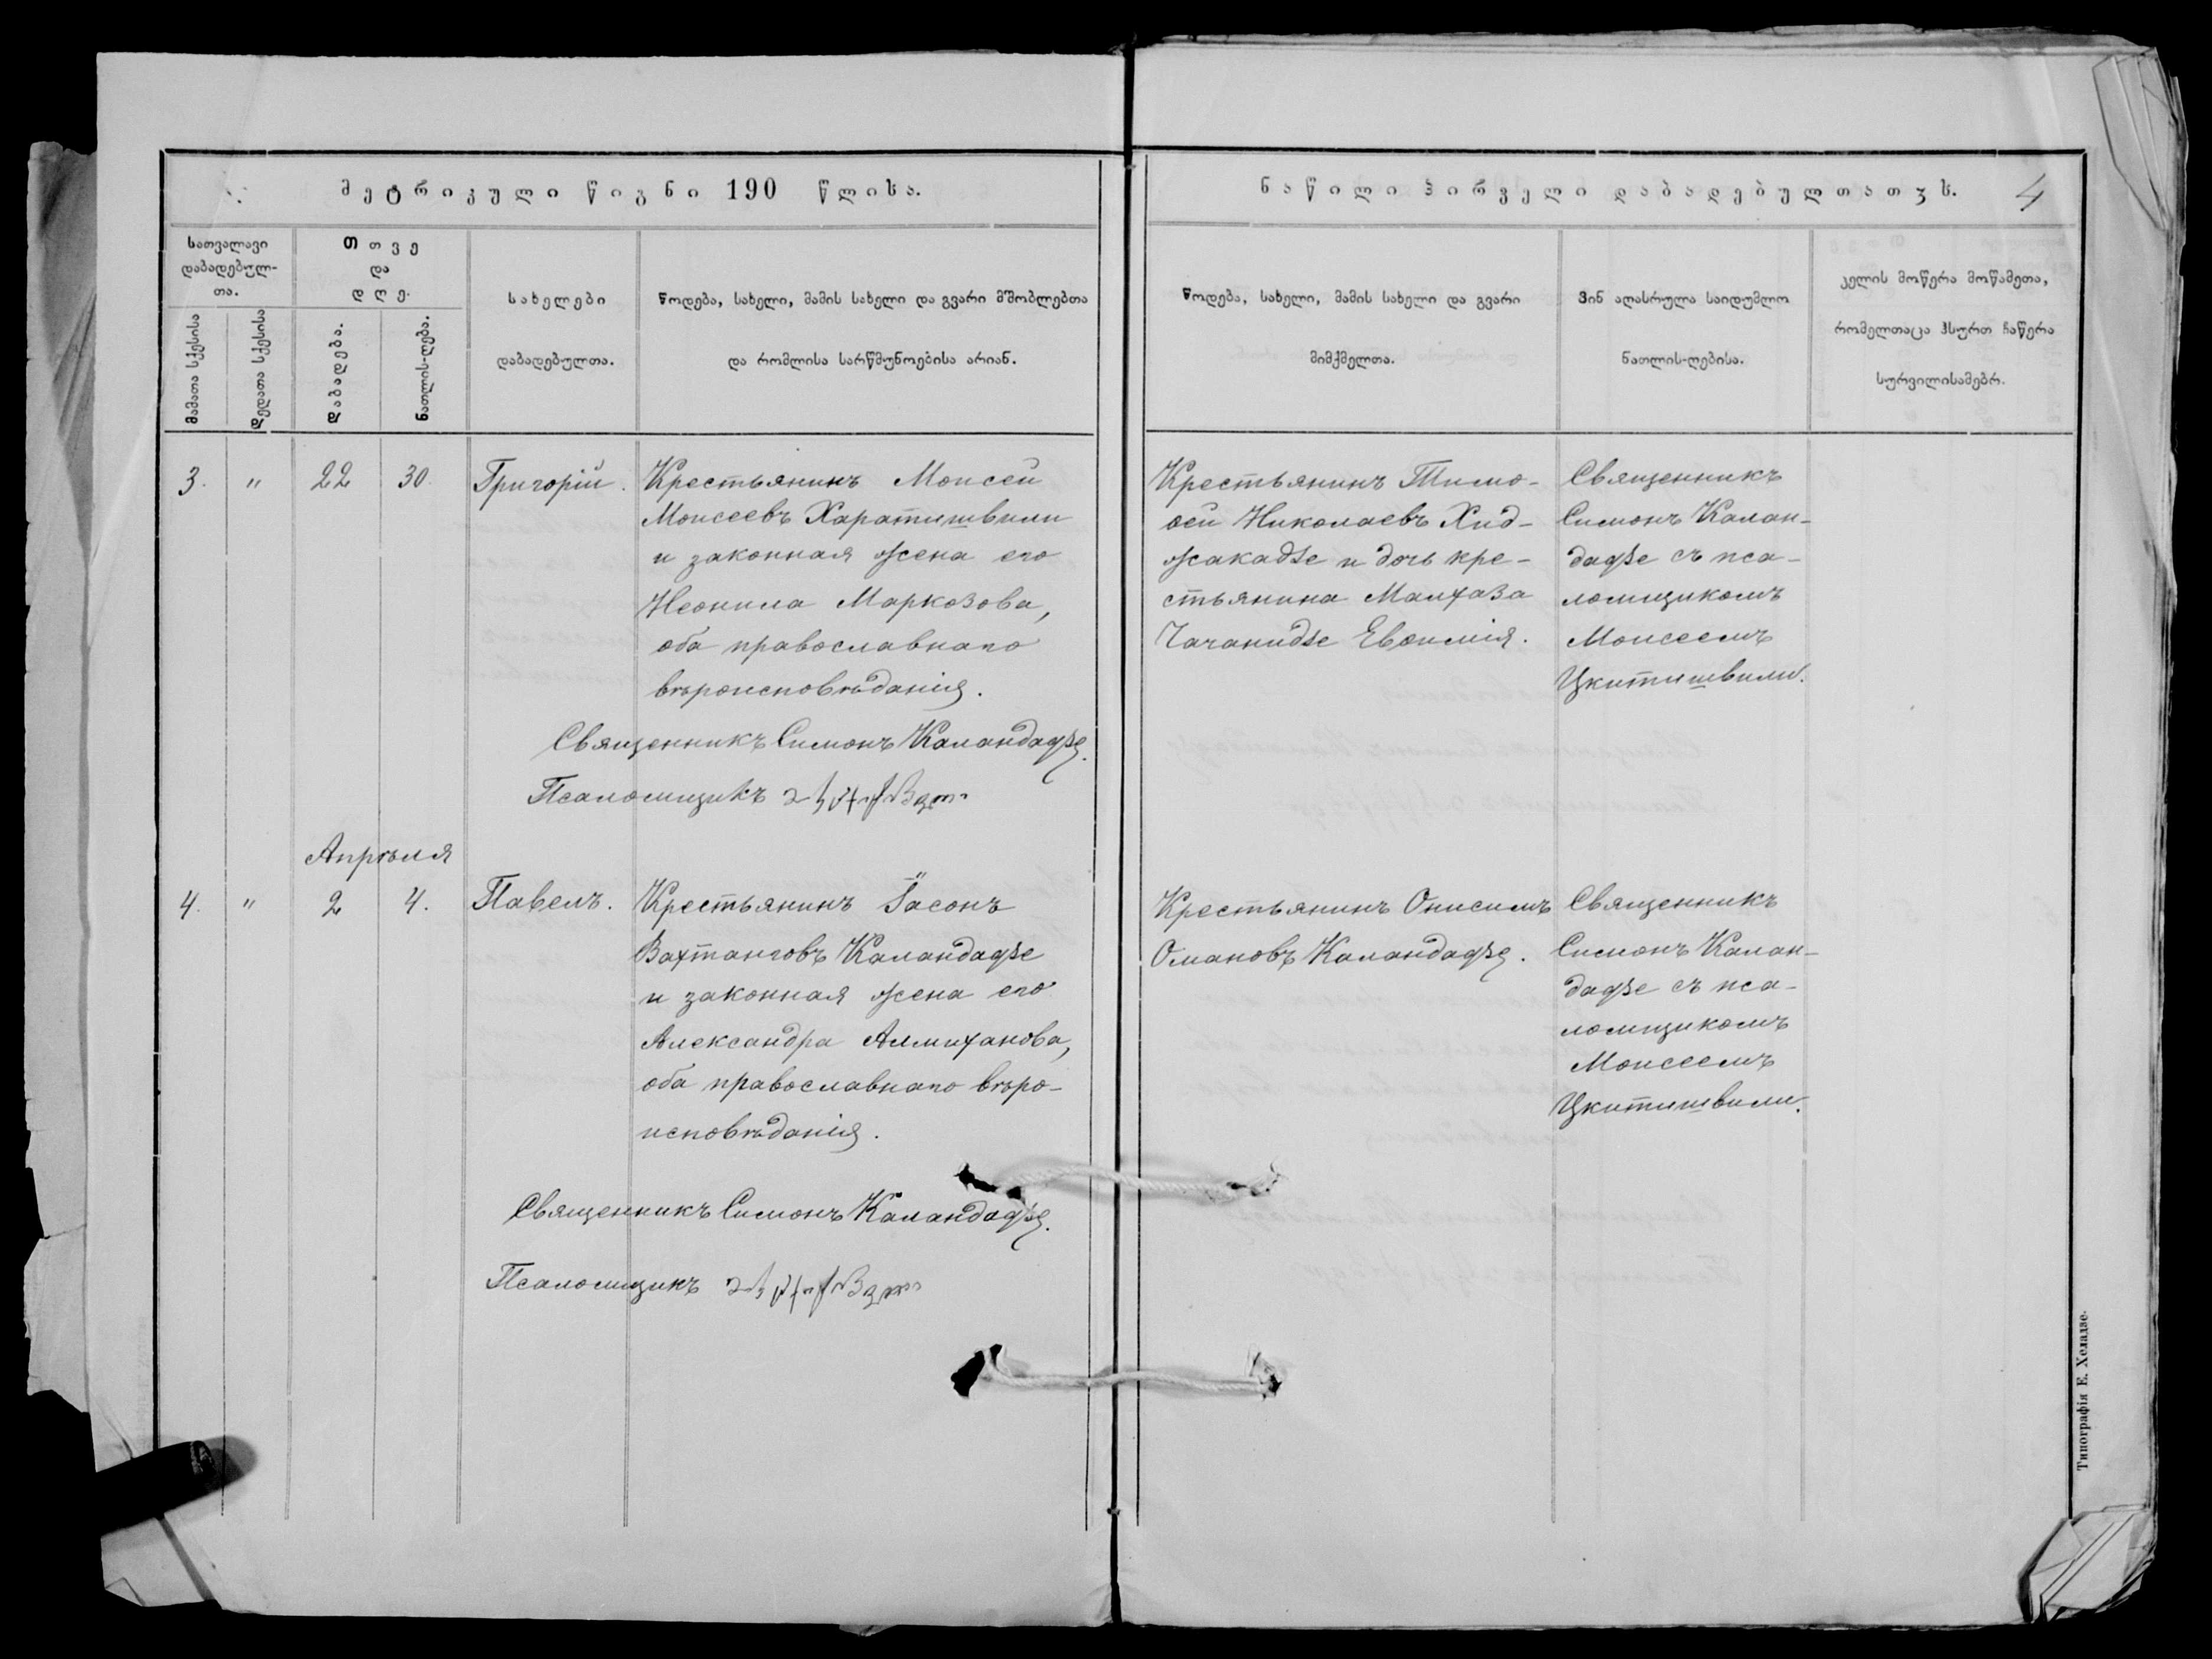 მეტრიკული წიგნი 190 წლისა.
სათვალავი
დაბადებულ-
თა.
მამათა სქესისა
დედათა სქესისა
თთვე
და
დღე.
დაბადება.
ნათლის-ღება.
სახელები
დაბადებულთა.
წოდება, სახელი, მამის სახელი და გვარი მშობლებთა
და რომლისა სარწმუნოებისა არიან.
3. " 22 30. Григорій. Крестьянинъ Моисей
Моисеевъ Харатишвили
и законная жена его
Неонила Маркозова,
оба православнаго
вѣроисповѣданія.
Священникъ Симонъ Каландадзе.
Псаломщикъ
Апрѣля
4. " 2 4. Павелъ. Крестьянинъ Іасонъ
Вахтанговъ Каландадзе
и законная жена его
Александра Алмиханова,
оба православнаго вѣро-
исповѣданія.
Священникъ Симонъ Каландадзе.
Псаломщикъ
ნაწილი პირველი დაბადებულთათჳს. 4
წოდება, სახელი, მამის სახელი და გვარი
მიმქმელთა.
ვინ აღასრულა საიდუმლო
ნათლის-ღებისა.
ჴელის მოწერა მოწამეთა,
რომელთაცა ჰსურთ ჩაწერა
სურვილისამებრ.
Крестьянинъ Тимо-
ѳей Николаевъ Хид-
жакадзе и дочь кре-
стьянина Малхаза
Чачанидзе Евѳимія.
Священникъ
Симонъ Калан-
дадзе съ пса-
ломщикомъ
Моисеемъ
Цкитишвили.
Крестьянинъ Онисимъ
Омановъ Каландадзе.
Священникъ
Симонъ Калан-
дадзе съ пса-
ломщикомъ
Моисеемъ
Цкитишвили.
Типографія Е. Хеладзе.